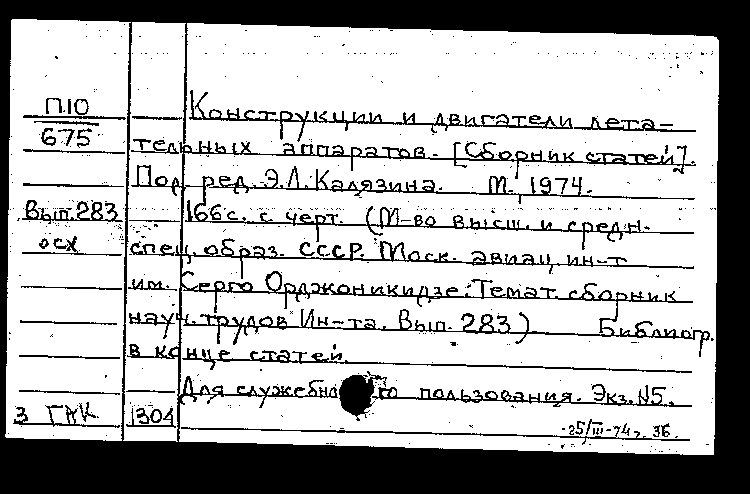 П10 Конструкции и двигатели лета-
675 тельных аппаратов. [Сборник статей].
Под ред. Э.Л. Калязина. М., 1974.
Вып. 283 166 с. с черт. (М-во высш. и средн.
осх спец. образ. СССР. Моск. авиац. ин-т
им. Серго Орджоникидзе. Темат. сборник
науч. трудов Ин-та. Вып. 283) Библиогр.
в конце статей.
Для служебного пользования. Экз. №5.
3 ГАК 1304
-25/III-74г. 36.